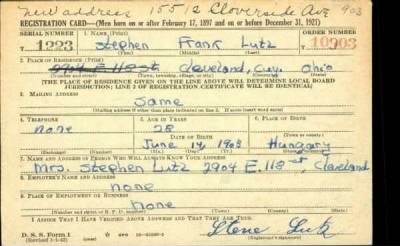 new address 15512 Cloverside Ave 903
REGISTRATION CARD—(Men born on or after February 17, 1897 and on or before December 31, 1921)
SERIAL NUMBER 1. NAME (Print) ORDER NUMBER
T 1223 Stephen Frank Lutz 10903
(First) (Middle) (Last)
2. PLACE OF RESIDENCE (Print)
2904 E. 118 St Cleveland, Cuy. Ohio
(Number and street) (Town, township, village, or city) (County) (State)
[THE PLACE OF RESIDENCE GIVEN ON THE LINE ABOVE WILL DETERMINE LOCAL BOARD
JURISDICTION; LINE 2 OF REGISTRATION CERTIFICATE WILL BE IDENTICAL]
3. MAILING ADDRESS
Same
[Mailing address if other than place indicated on line 2. If same insert word same]
4. TELEPHONE 5. AGE IN YEARS 6. PLACE OF BIRTH
none 38
DATE OF BIRTH (Town or county)
June 14, 1903 Hungary
(Exchange) (Number) (Mo.) (Day) (Yr.) (State or country)
7. NAME AND ADDRESS OF PERSON WHO WILL ALWAYS KNOW YOUR ADDRESS
Mrs. Stephen Lutz 2904 E. 118 st, Cleveland
8. EMPLOYER'S NAME AND ADDRESS
none
9. PLACE OF EMPLOYMENT OR BUSINESS
none
(Number and street or R. F. D. number) (Town) (County) (State)
I AFFIRM THAT I HAVE VERIFIED ABOVE ANSWERS AND THAT THEY ARE TRUE.
D. S. S. Form 1 Steve Lutz
(Revised 1-1-42) (over) (Registrant's signature)